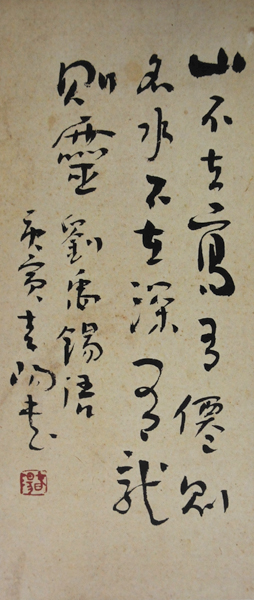 山不在高有僊則
名水不在深有龍
則靈 劉禹錫語
庚寅春陽書